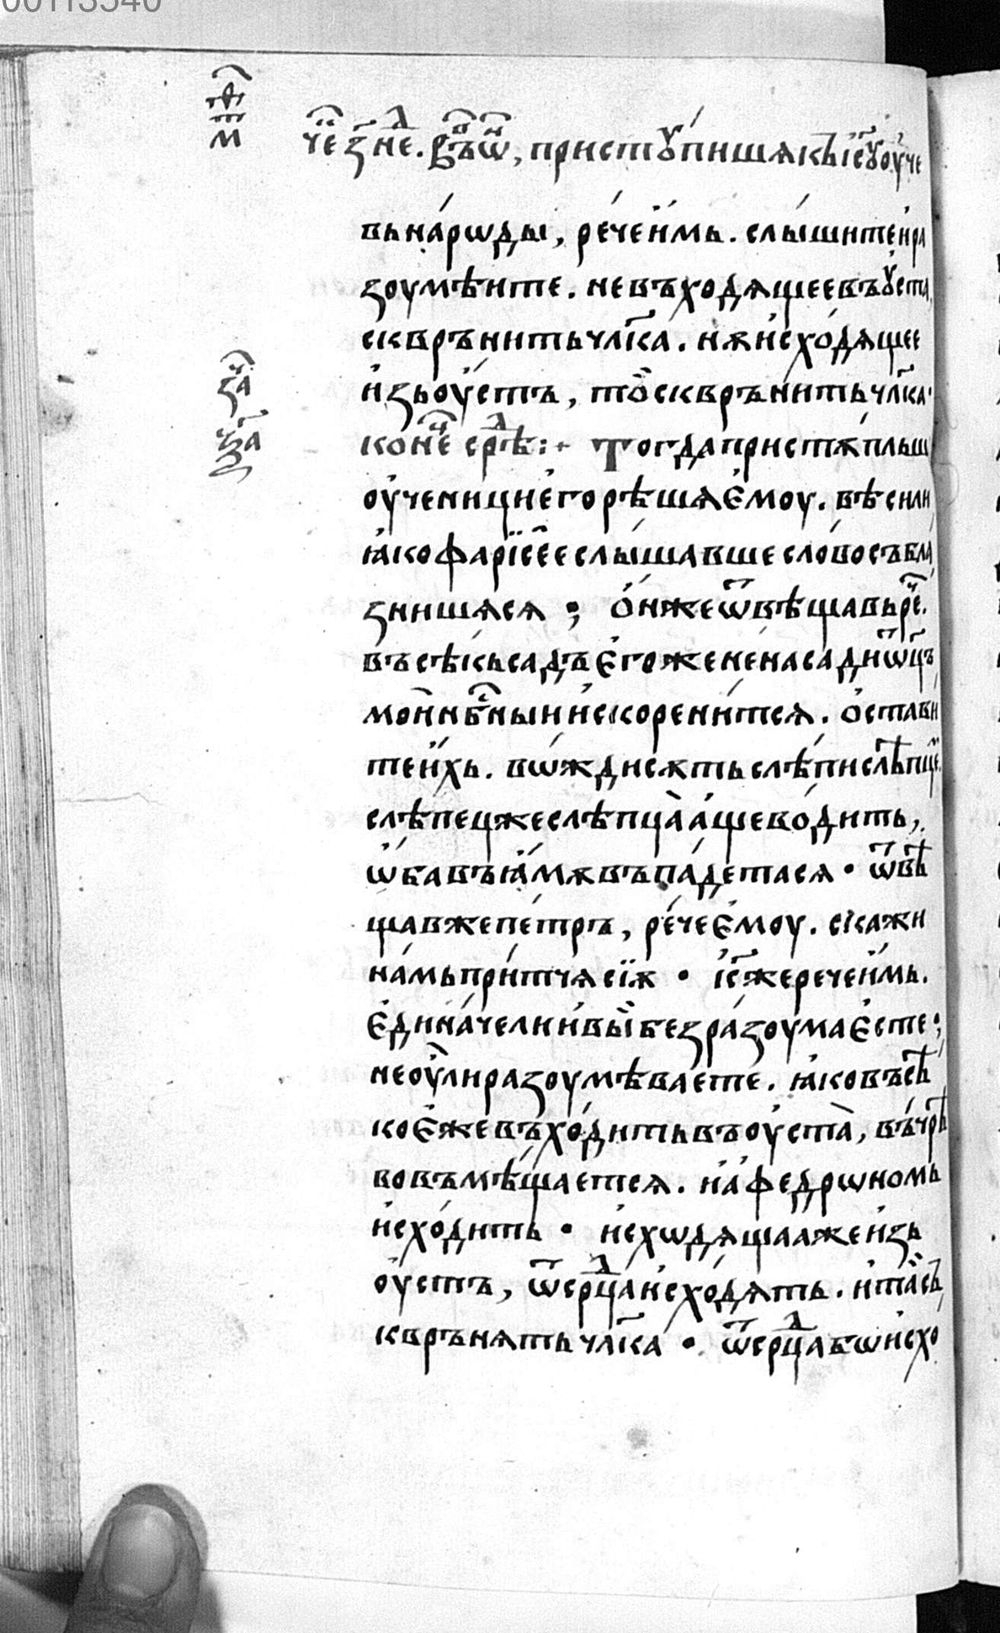 00113540
че҃ з҃ не. въ ѡ҆, пристꙋ́пишѧ къ і҆с҃ꙋ оу҆че
вь на́рѡды, ре́че и҆̀мь. слы́шите и҆ ра
зоумѣ́ите. не въходѧщее въ ꙋ҆ста
сквръни́ть чл҃ка. нѫ и҆схо́дѧщее
и҆зь оу҆́стъ, то̀ сквръни́ть чл҃ка.
за҃
коне҃ срѣ⁘ Тогда пристѫ́пльш
оу҆ченици е҆го́ рѣ́шѧ є҆моу. вѣси ли
ꙗ҆́ко фарїсе́е слы́шавше сло́во съблаⷶ
знишѧсѧ ; Ѻ҆́нже ѿвѣща́вь рече҃.
въсѣ́кь садъ є҆гоже не насади ѿц҃ъ
мо́и нб҃ныи и҆скорени́тсѧ. ѻ҆стави
те и҆̀хь. вѡ́жди сѫть слѣ́пи слѣпце́.
слѣпець же слѣпца̀ а҆́ще во́дить,
ѡ҆́ба въ ꙗ҆́мѫ въпаде́тасѧ · ѿвѣ
щав же пе́тръ, ре́че є҆моу. скажи
на́мь при́тчѧ сїѫ · і҆с҃ же рече и҆̀мь.
є҆дина́че ли и҆ вы̀ без ра́зоума є҆сте ;
не оу҆̀ ли разоумѣва́ете. ꙗ҆ко въсѣ
ко є҆́же въхо́дить въ оу҆ста̀, въ чрѣ
во въмѣща́етсѧ. и҆ а҆федрѡномь
и҆схо́дить · и҆схѡдѧщаа же и҆зь
оу҆́стъ, ѿ срⷣца и҆схо́дѧть. и҆ та̀ с
квръ́нѧть чл҃ка · ѿ срⷣца бѡ и҆схо